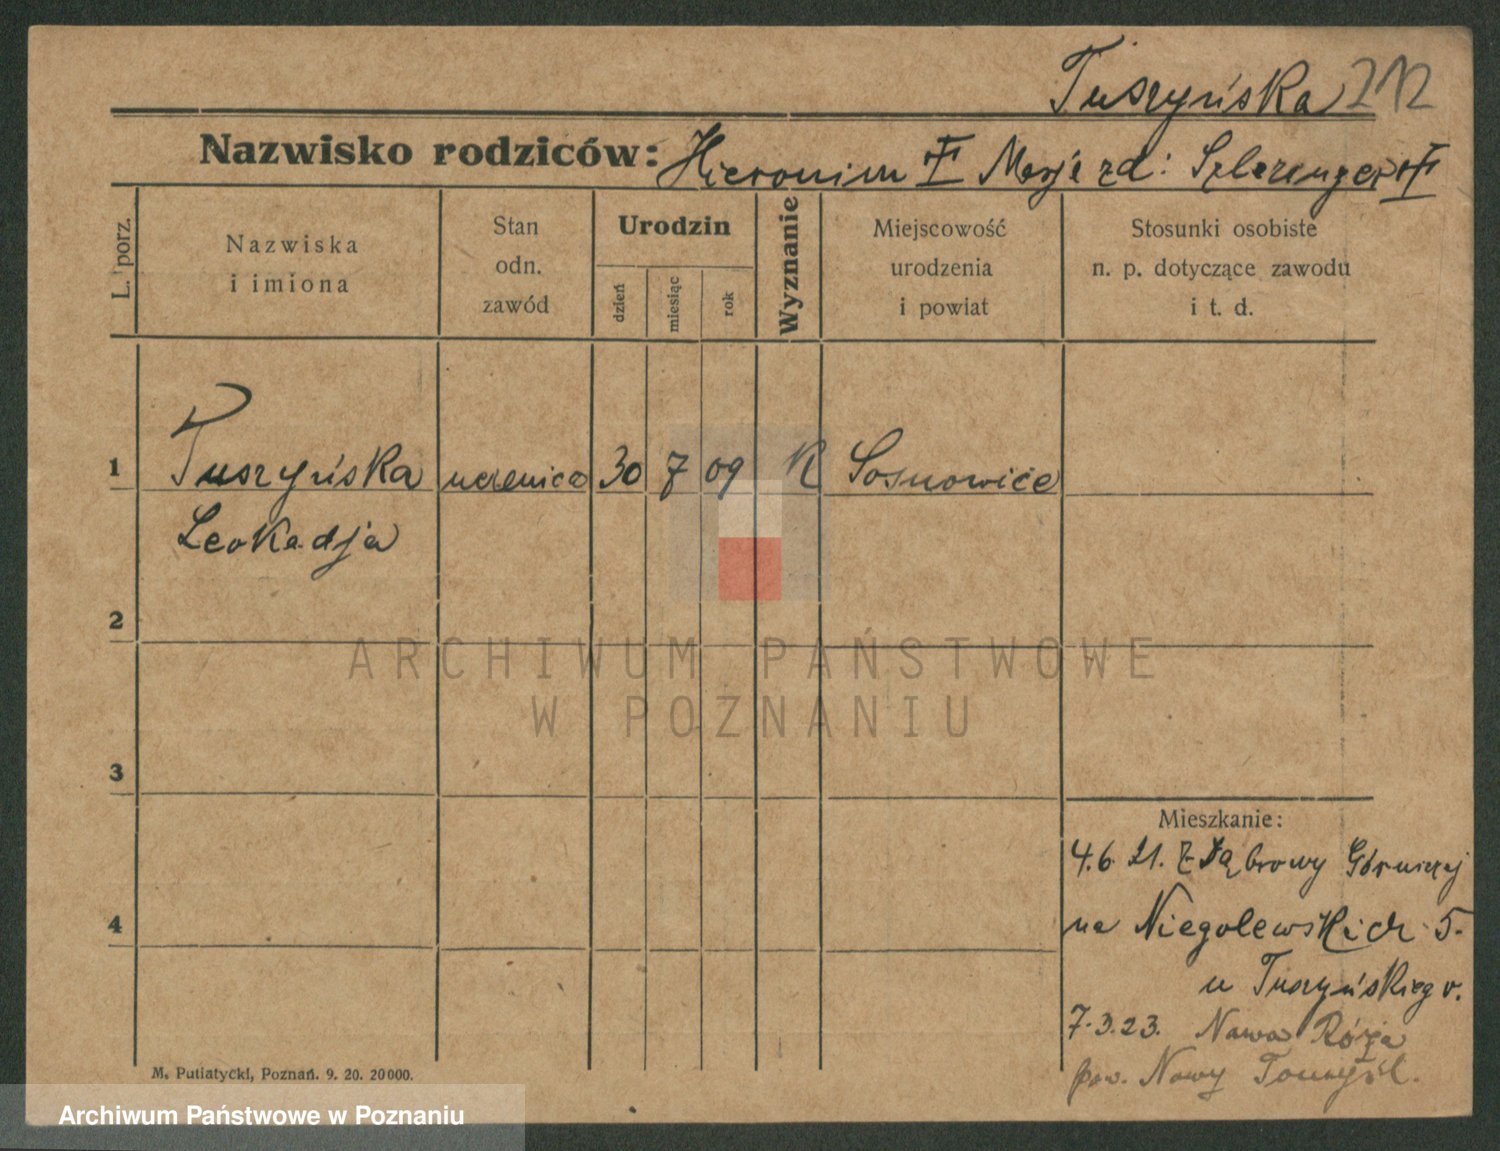 Tuszyńska 212
Nazwisko rodziców: Hieronim Marje zd:
L. porz.
Nazwiska
i imiona
Stan
odn.
zawód
Urodzin
dzień
miesiąc
rok
Wyznanie
Miejscowość
urodzenia
i powiat
Stosunki osobiste
n. p. dotyczące zawodu
i t. d.
1 Tuszyńska uczenica 30 7 09 K Sosnowice
Leokadja
2
ARCHIWUM PAŃSTWOWE
W POZNANIU
3
Mieszkanie:
4.6.21. z Dąbrowy Górniczej
4
na Niegolewskich 5.
u Tuszyńskiego.
7.3.23. Nawa Róża
pow. Nowy Tomyśl.
M. Putiatycki, Poznań. 9. 20. 20000.
Archiwum Państwowe w Poznaniu